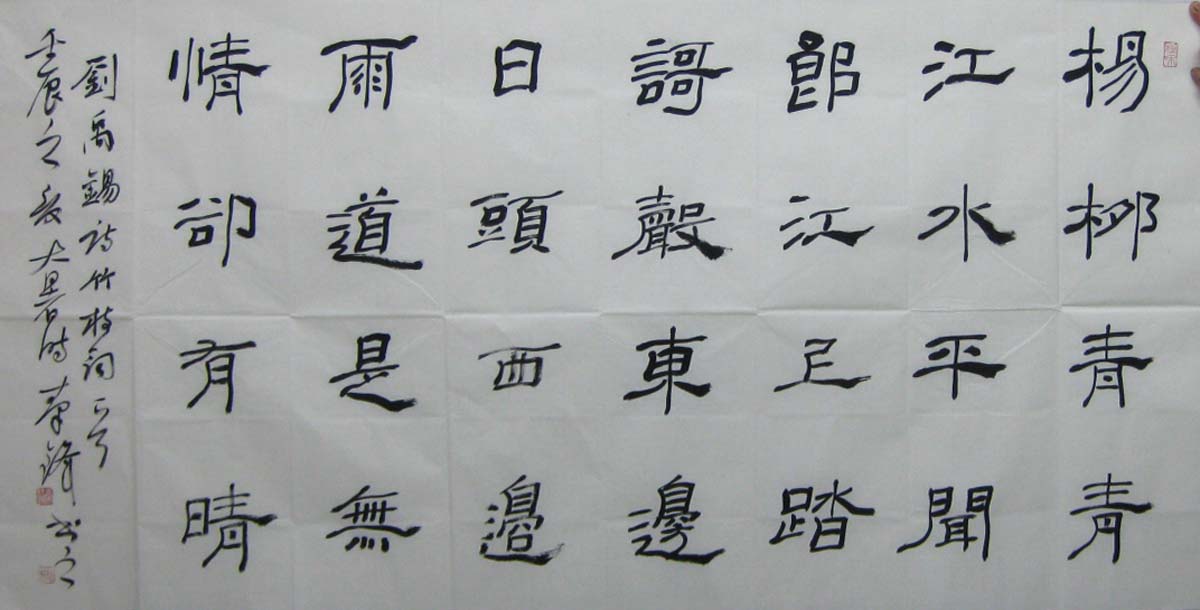 楊柳青青
江水平聞
郎江上踏
謌聲東邊
日頭西邉
雨道是無
情卻有晴
劉禹錫詩竹枝詞一首
壬辰之夏大暑時鋒書之